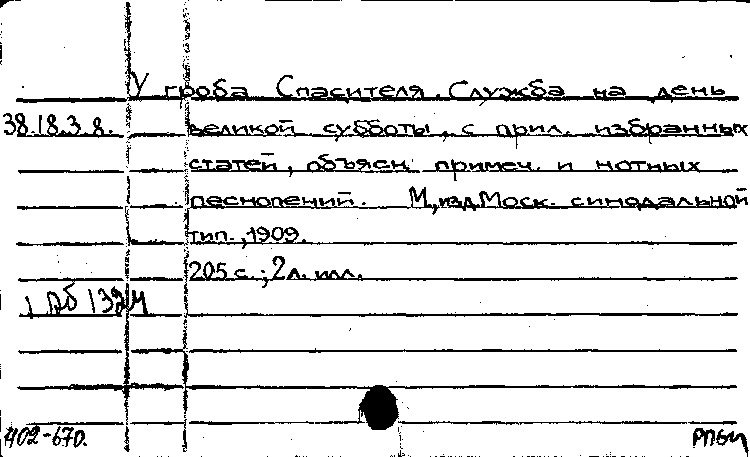 У гроба Спасителя. Служба на день
38.18.3.8. великой субботы, с прил. избранных
статей, объясн. примеч. и нотных
песнопений. М, изд. Моск. синодальной
тип., 1909.
205 с.; 2 л. илл.
402-67р.